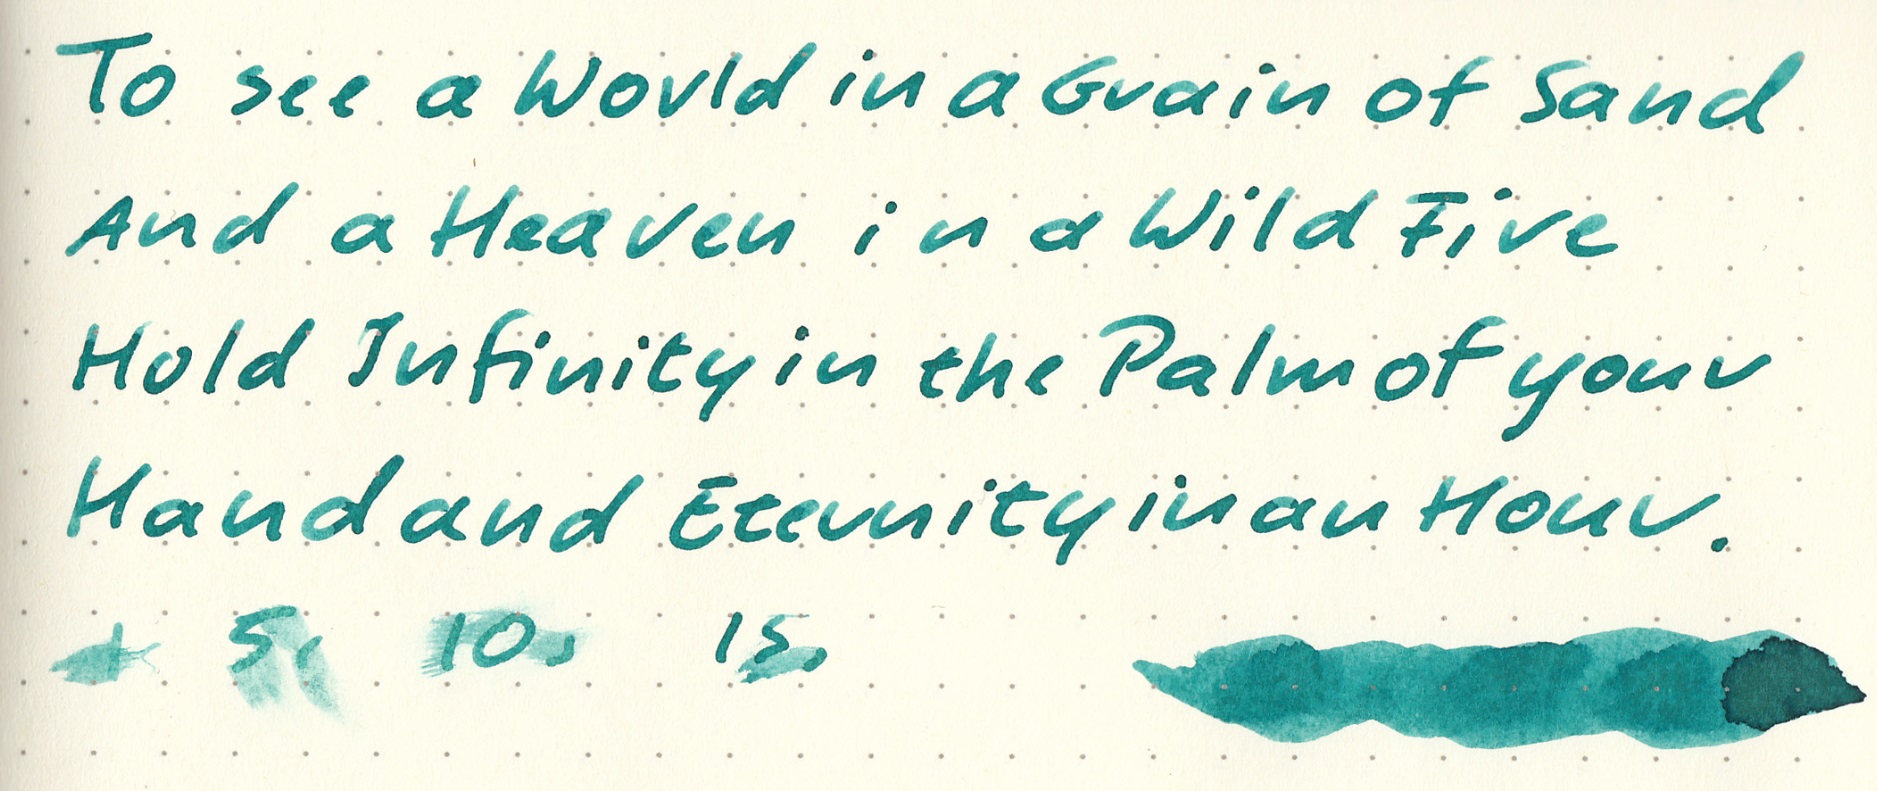 To see a World in a Grain of Sand
And a Heaven in a Wild Fire
Hold Infinity in the Palm of your
Hand and Eternity in an Hour.
5, 10, 15,